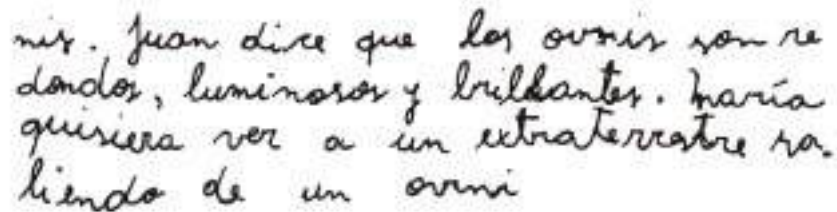 nis. Juan dice que los ovnis son re
dondos, luminosos y brillantes. María
quisiera ver a un extraterrestre sa-
liendo de un ovni